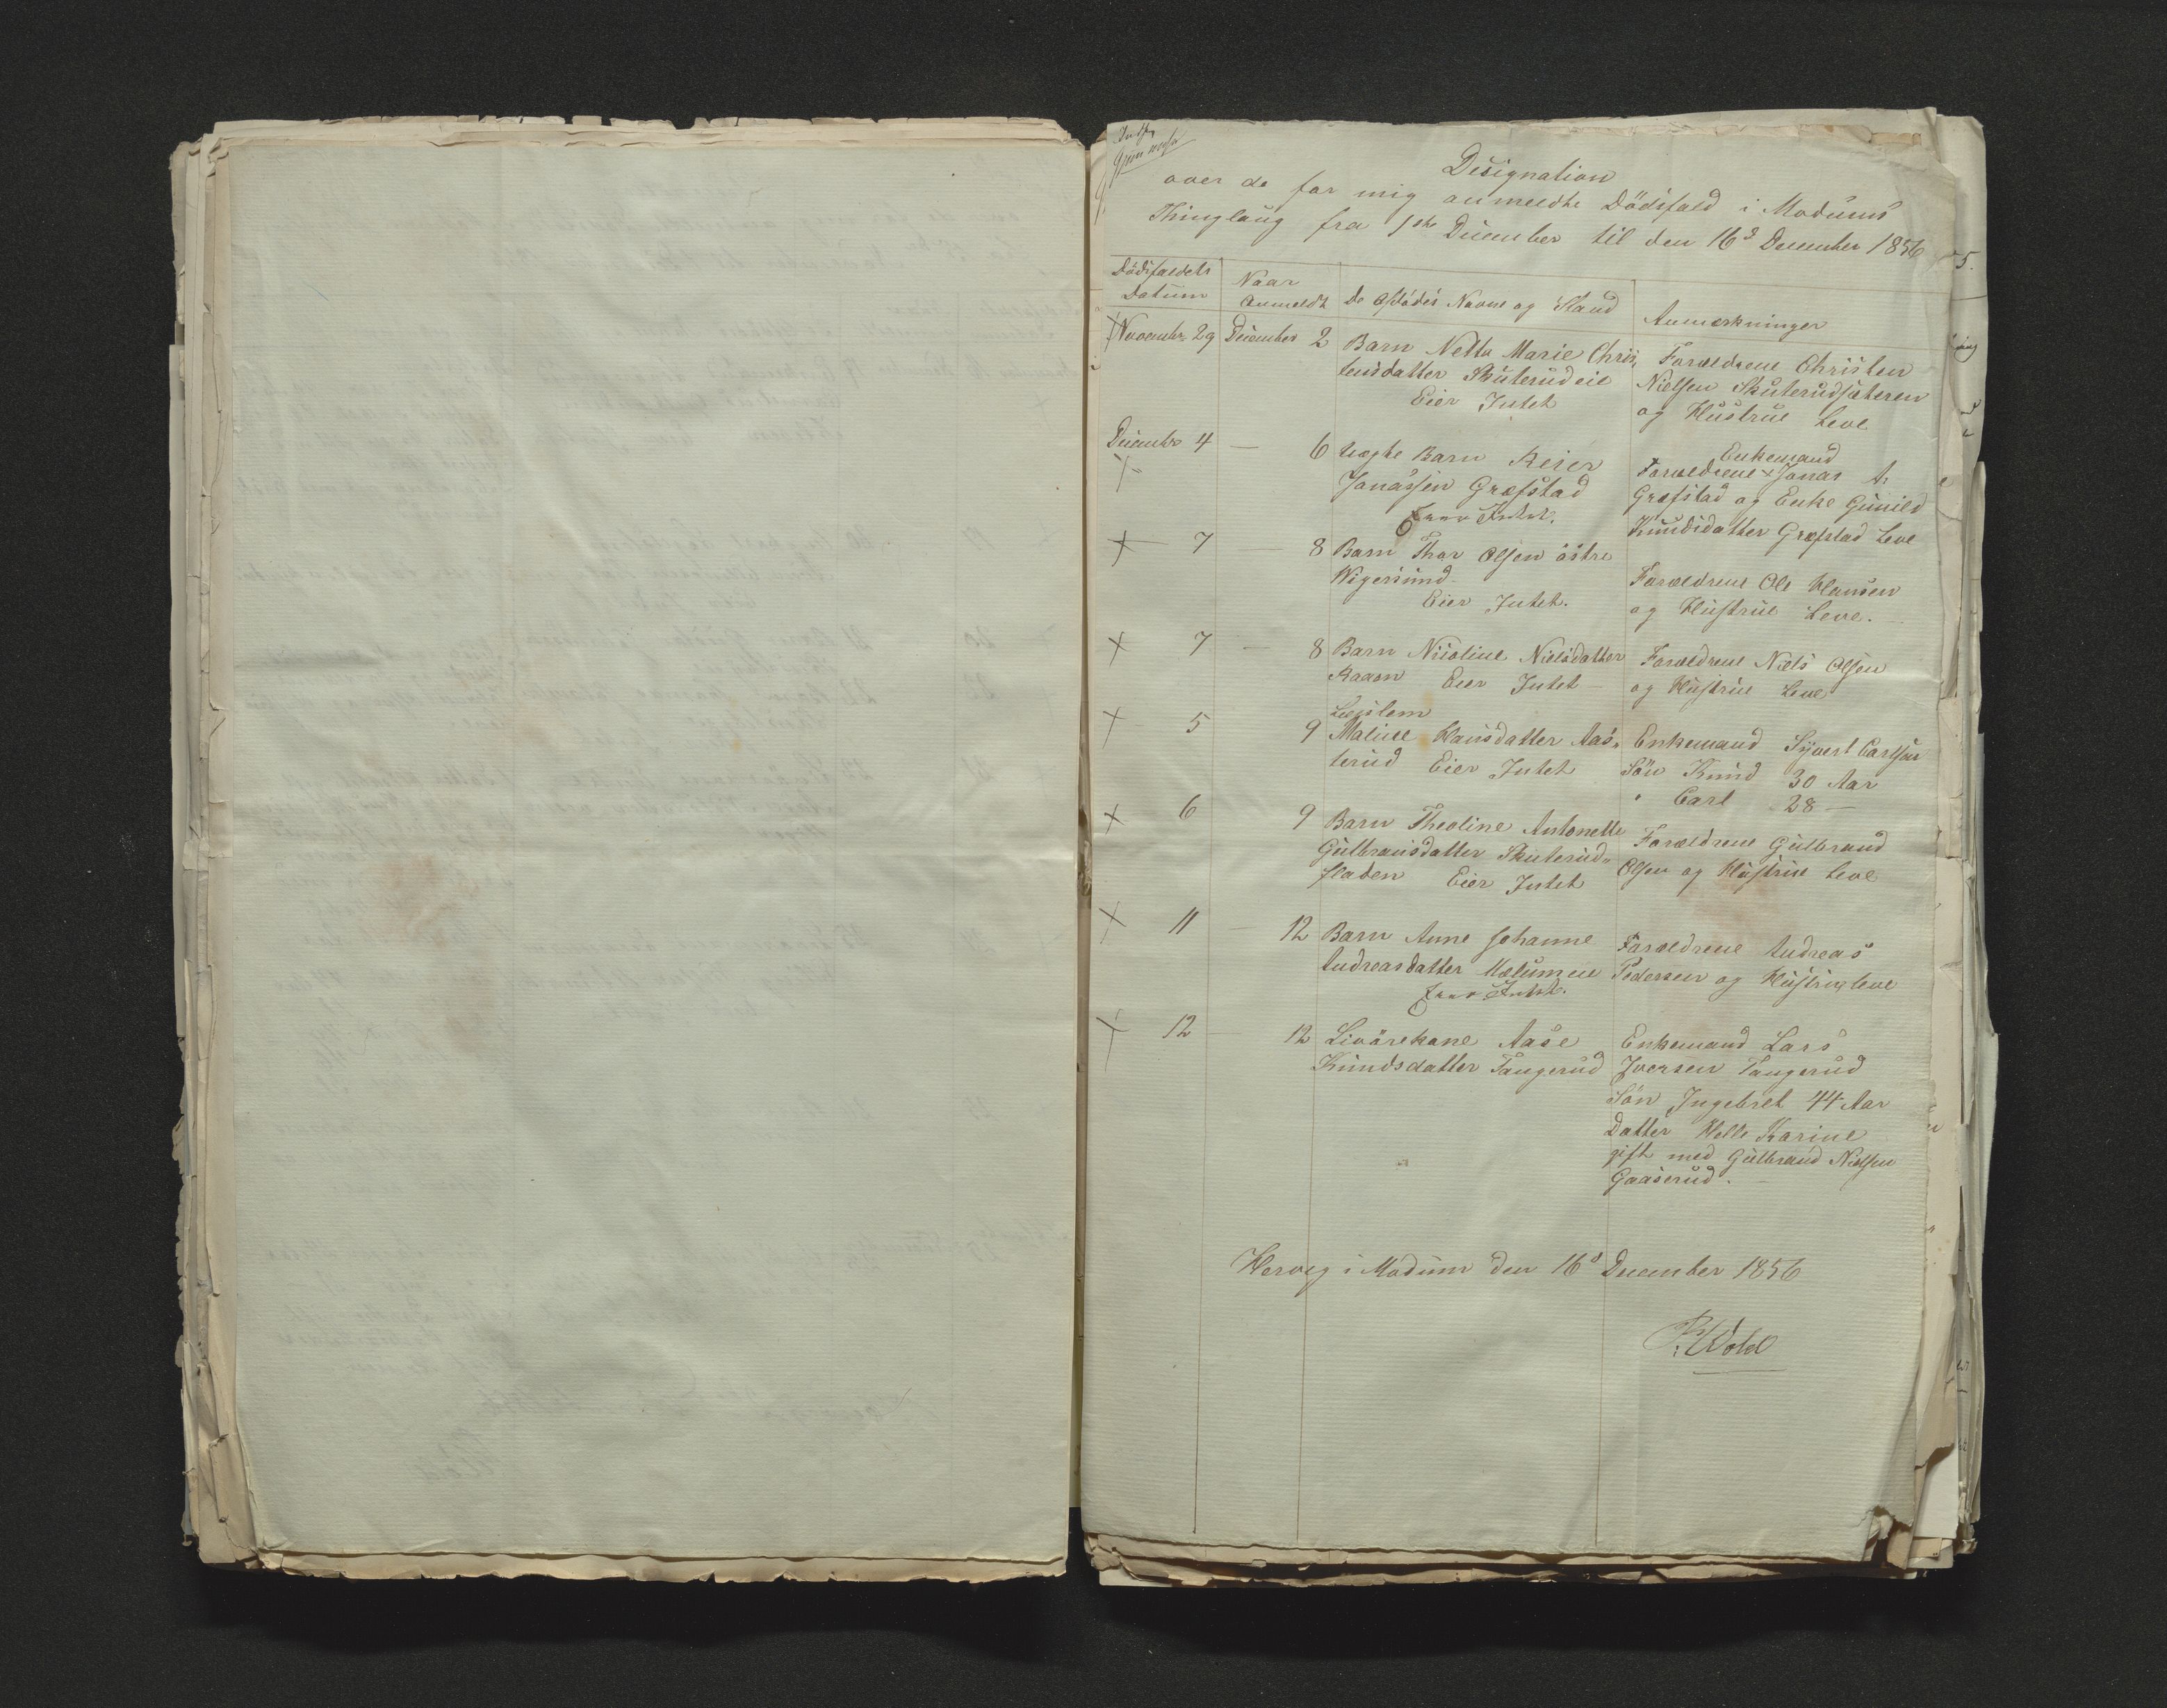 Designation
over de for mig anmeldte Dödsfald i Modums
Thinglaug fra 1ste December til den 16de December 1856
Dödsfaldets Datum
Naar Anmeldt
De Afdödes Navne og Stand
Anmærkninger
Novembr 29 December 2 Barn Netta Marie Chris-
tensdatter Skuterudeie
Eier Intet
Forældrene Christen
Nielsen Skuterudsæteren
og Hustrue Leve
Decembr 4 — 6 uægte Barn Reier
Jonassen Græfstad
Eier Intet.
Enkemand
Forældrene Jonas A.
Græfstad og Enke Gunild
Knudsdatter Græfstad Leve
7 — 8 Barn Thor Olsen östre
Wigersund
Eier Intet.
Forældrene Ole Hansen
og Hustrue Leve.
7 — 8 Barn Nicoline Nielsdatter
Raaen Eier Intet —
Forældrene Niels Olsen
og Hustrue Leve
5 9 Legslem
Maline Hansdatter Aas-
terud Eier Intet
Enkemand Syvert Carlsen
Sön Knud 30 Aar
" Carl 28 —
6 9 Barn Theoline Antonette
Gulbransdatter Skuterud-
fladen Eier Intet
Forældrene Gulbrand
Olsen og Hustrue Leve
11 — 12 Barn Anne Johanne
Andreasdatter Mælumeie
Eier Intet.
Forældrene Andreas
Pedersen og Hustrue leve
12 — 12 Livörekone Aase
Knudsdatter Tangerud
Enkemand Lars
Iversen Tangerud
Sön Ingebret 44 Aar
Datter Helle Karine
gift med Gulbrand Nielsen
Gaaserud.
Hervig i Modum den 16d December 1856
P. Wold